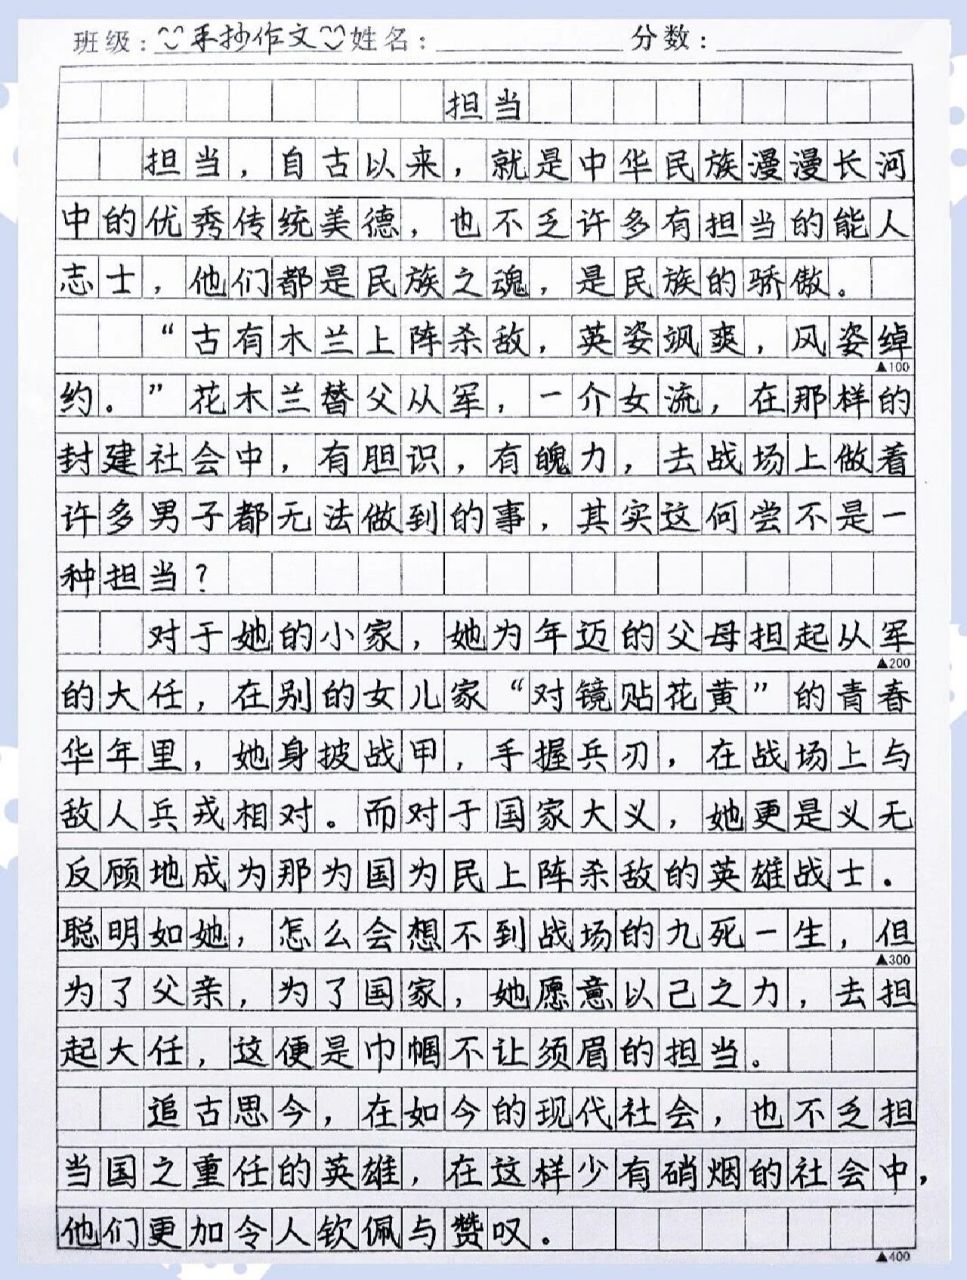 班级：手抄作文 姓名： 分数：
担当
担当，自古以来，就是中华民族漫漫长河
中的优秀传统美德，也不乏许多有担当的能人
志士，他们都是民族之魂，是民族的骄傲。
“古有木兰上阵杀敌，英姿飒爽，风姿绰
▲100
约。”花木兰替父从军，一介女流，在那样的
封建社会中，有胆识，有魄力，去战场上做着
许多男子都无法做到的事，其实这何尝不是一
种担当？
对于她的小家，她为年迈的父母担起从军
▲200
的大任，在别的女儿家“对镜贴花黄”的青春
华年里，她身披战甲，手握兵刃，在战场上与
敌人兵戎相对。而对于国家大义，她更是义无
反顾地成为那为国为民上阵杀敌的英雄战士。
聪明如她，怎么会想不到战场的九死一生，但
▲300
为了父亲，为了国家，她愿意以己之力，去担
起大任，这便是巾帼不让须眉的担当。
追古思今，在如今的现代社会，也不乏担
当国之重任的英雄，在这样少有硝烟的社会中，
他们更加令人钦佩与赞叹。
▲400